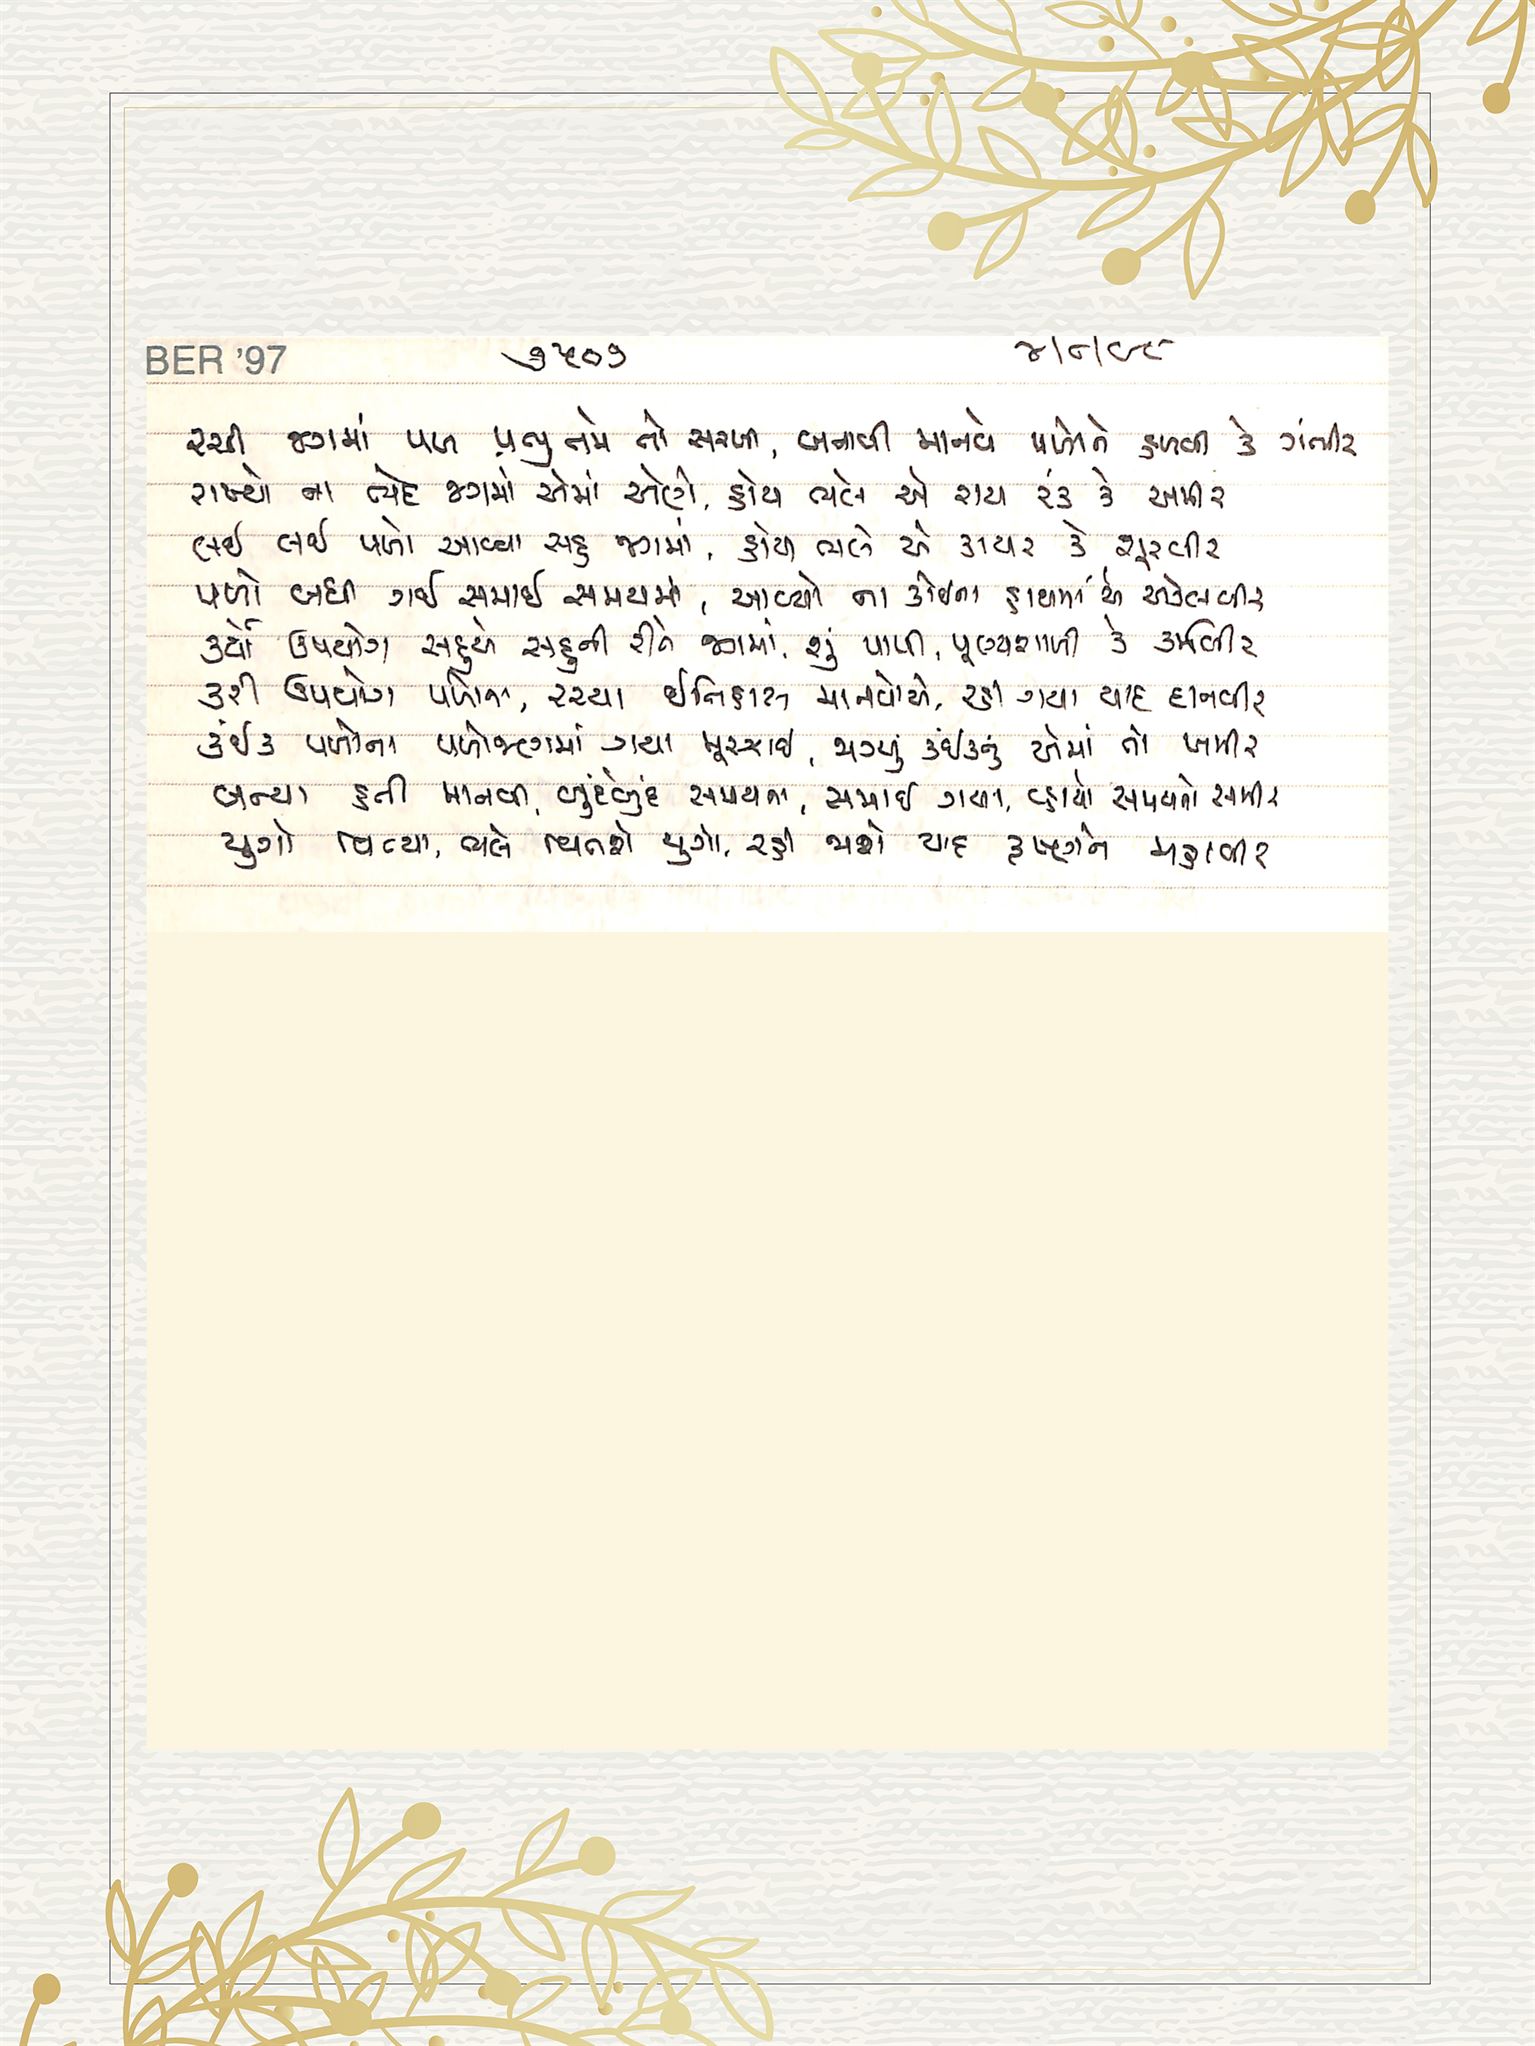 BER '97 ૭૫૦૭ ૪/૮/૯૮
રચી જગમાં પળ પ્રભુ તમે તો સરખી, બનાવી માનવે પળોને હળવી કે ગંભીર
રાખ્યો ના ભેદ જગમાં એમાં એણે, હોય ભલે એ રાય રંક કે અમીર
લઈ લઈ પળો આવ્યા સહુ જગમાં, હોય ભલે એ કાયર કે શૂરવીર
પળો બધી ગઈ સમાઈ સમયમાં, આવ્યો ના કોઈના હાથમાં એ
કર્યો ઉપયોગ સહુએ સહુની રીતે જગમાં, શું પાપી, પૂણ્યશાળી કે કર્મવીર
કરી ઉપયોગ પળોના, રચ્યા ઈતિહાસ માનવોએ, રહી ગયા યાદ દાનવીર
કંઈક પળોના પળોજણમાં ગયા મૂરઝાઈ, ઝગ્યું કંઈકનું એમાં તો ખમીર
બન્યા હતી માનવી, બુંદેબુંદ સમયના, સમાઈ ગયા, વ્હાયો સમયનો સમીર
યુગો વિત્યા, ભલે વિતશે યુગો, રહી જશે યાદ કૃષ્ણને મહાવીર